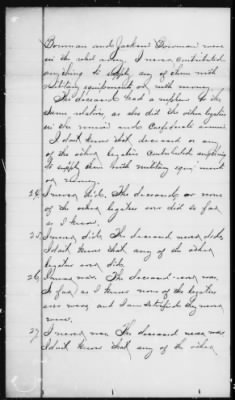 Bowman and Jackson Bowman were
in the rebel army. I never contributed
anything to supply any of them with
military equipments or with money.
The deceased had a nephew &c the
same relatives, as also did the other legatees
in the and Confederate armies
I don't know that deceased or any
of the other legatees contributed anything
to supply them with military equipments
or money.
24. I never did. The deceased or none
of the other legatees ever did so far
as I know.
25. I never did. The deceased never did.
I don't know that any of the other
legatees ever did.
26. I never was. The deceased never was.
So far as I know none of the legatees
ever were, and I am satisfied they never
were.
27. I never was. The deceased never was.
I don't know that any of the other